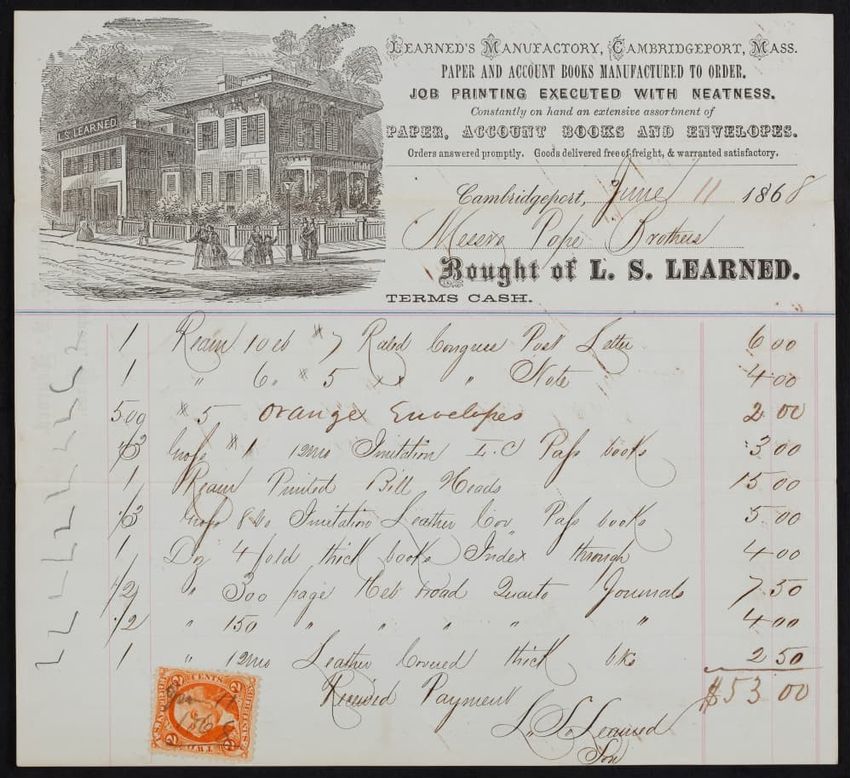 LEARNED'S MANUFACTORY, CAMBRIDGEPORT, MASS.
PAPER AND ACCOUNT BOOKS MANUFACTURED TO ORDER.
JOB PRINTING EXECUTED WITH NEATNESS.
Constantly on hand an extensive assortment of
PAPER, ACCOUNT BOOKS AND ENVELOPES.
Orders answered promptly. Goods delivered free of freight, & warranted satisfactory.
L. S. LEARNED
Cambridgeport, June 11 1868
Messrs Pope Brothers
Bought of L. S. LEARNED.
TERMS CASH.
1 Ream 10 lb #7 Ruled Congress Post Letter 6 00
1 " 6 " #5 " Note 4 00
500 #5 Orange Envelopes 2 00
Gross #1 12mo Imitation L.C Pass books 3.00
1 Ream Printed Bill Heads 15 00
Gross 8vo Imitation Leather Cov Pass books 5 00
1 Doz 4 fold thick books Index through 4 00
1/2 " 300 page broad Quarto Journals 7 50
1/2 " 150 " " " " " 4 00
1 " 12mo Leather Covered thick bks 2 50
Received Payment $53 00
L. S. Learned
Son
2 CENTS 2
Jun 11
186